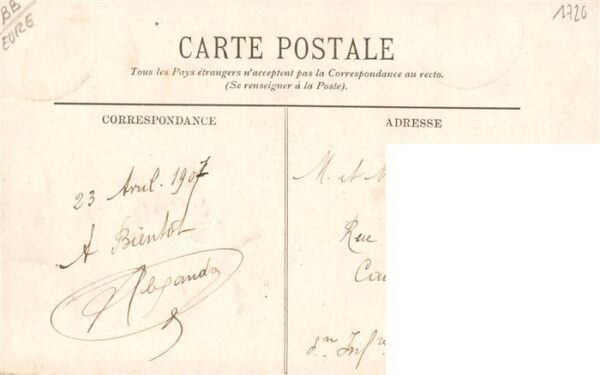 BB
EURE
1726
CARTE POSTALE
Tous les Pays étrangers n'acceptent pas la Correspondance au recto.
(Se renseigner à la Poste).
CORRESPONDANCE
23 Avril. 1907
A Bientôt
ADRESSE
M. et M
Rue